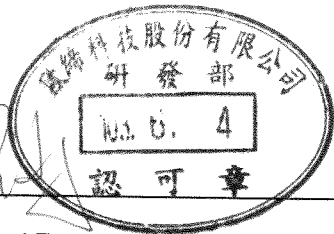 科技股份有限公司
研發部
4
認可章